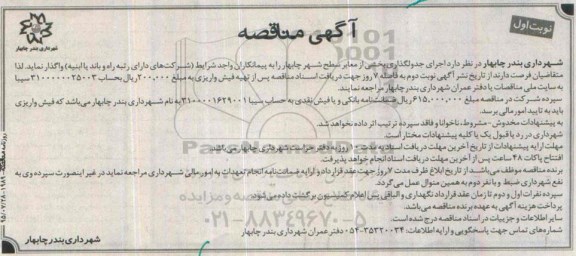 نوبت اول
آگهی مناقصه
شهرداری بندر چابهار
شهرداری بندر چابهار در نظر دارد اجرای جدولگذاری بخشی از معابر سطح شهر چابهار را به پیمانکاران واجد شرایط (شرکت‌های دارای رتبه راه و باند یا ابنیه) واگذار نماید. لذا
متقاضیان فرصت دارند از تاریخ نشر آگهی نوبت دوم به فاصله ۷ روز جهت دریافت اسناد مناقصه پس از تهیه فیش واریزی به مبلغ ۲۰۰،۰۰۰ ریال بحساب ۳۱۰۰۰۰۰۰۲۵۰۰۳ سیبا
به سایت ملی مناقصات یا دفتر عمران شهرداری چابهار مراجعه نمایند.
سپرده شرکت در مناقصه مبلغ ۶۱۵،۰۰۰،۰۰۰ ریال ضمانتنامه بانکی و یا فیش نقدی به حساب سیبا ۳۱۰۰۰۰۱۶۲۹۰۰۱ به نام شهرداری بندر چابهار می‌باشد که فیش واریزی
باید به تایید امور مالی برسد.
به پیشنهادات مخدوش- مشروط، ناخوانا و فاقد سپرده ترتیب اثر داده نخواهد شد.
شهرداری در رد یا قبول یک یا کلیه پیشنهادات مختار است.
مهلت ارایه پیشنهادات از تاریخ آخرین مهلت دریافت اسناد به مدت روز به دفتر حراست شهرداری چابهار می باشد.
افتتاح پاکات ۴۸ ساعت پس از آخرین مهلت دریافت اسناد انجام خواهد پذیرفت.
برنده مناقصه موظف می‌باشد از تاریخ ابلاغ ظرف مدت ۷ روز جهت عقد قرارداد و ارایه ضمانت‌نامه انجام تعهدات به امور مالی شهرداری مراجعه نماید در غیر اینصورت سپرده وی به
نفع شهرداری ضبط و با نفر دوم به همین منوال عمل می گردد.
سپرده نفرات اول و دوم تا زمان عقد قرارداد نگهداری و الباقی پس از اعلام کمیسیون برگشت داده می‌شود.
پرداخت هزینه آگهی به عهده برنده مناقصه می‌باشد.
سایر اطلاعات و جزییات در اسناد مناقصه درج شده است.
شماره‌های تماس جهت پاسخگویی و ارایه اطلاعات: ۳۵۳۲۰۰۳۴-۰۵۴ دفتر عمران شهرداری بندر چابهار
شهرداری بندر چابهار
۰۲۱-۸۸۳۴۹۶۷۰-۵